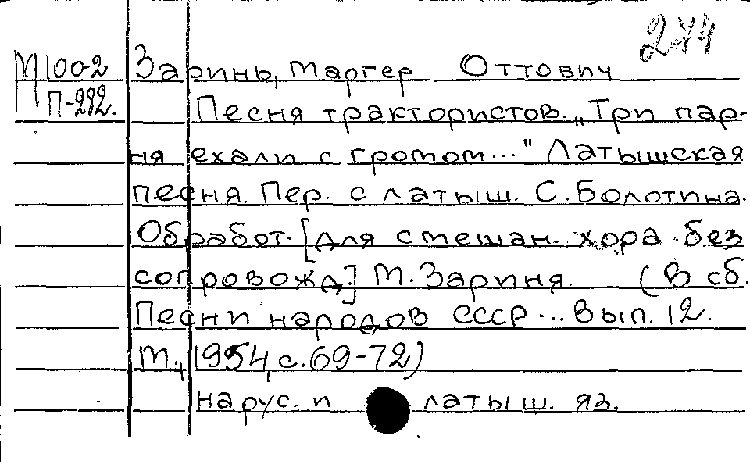 274
М 1002 Заринь, Маргер Оттович
П-292. Песня трактористов. „Три пар-
ня ехали с громом..." Латышская
песня. Пер. с латыш. С. Болотина.
Обработ. [для смешан. хора без
сопровожд.] М. Зариня. (В сб.
Песни народов СССР... Вып. 12.
М., 1954, с. 69-72)
на рус. и латыш. яз.